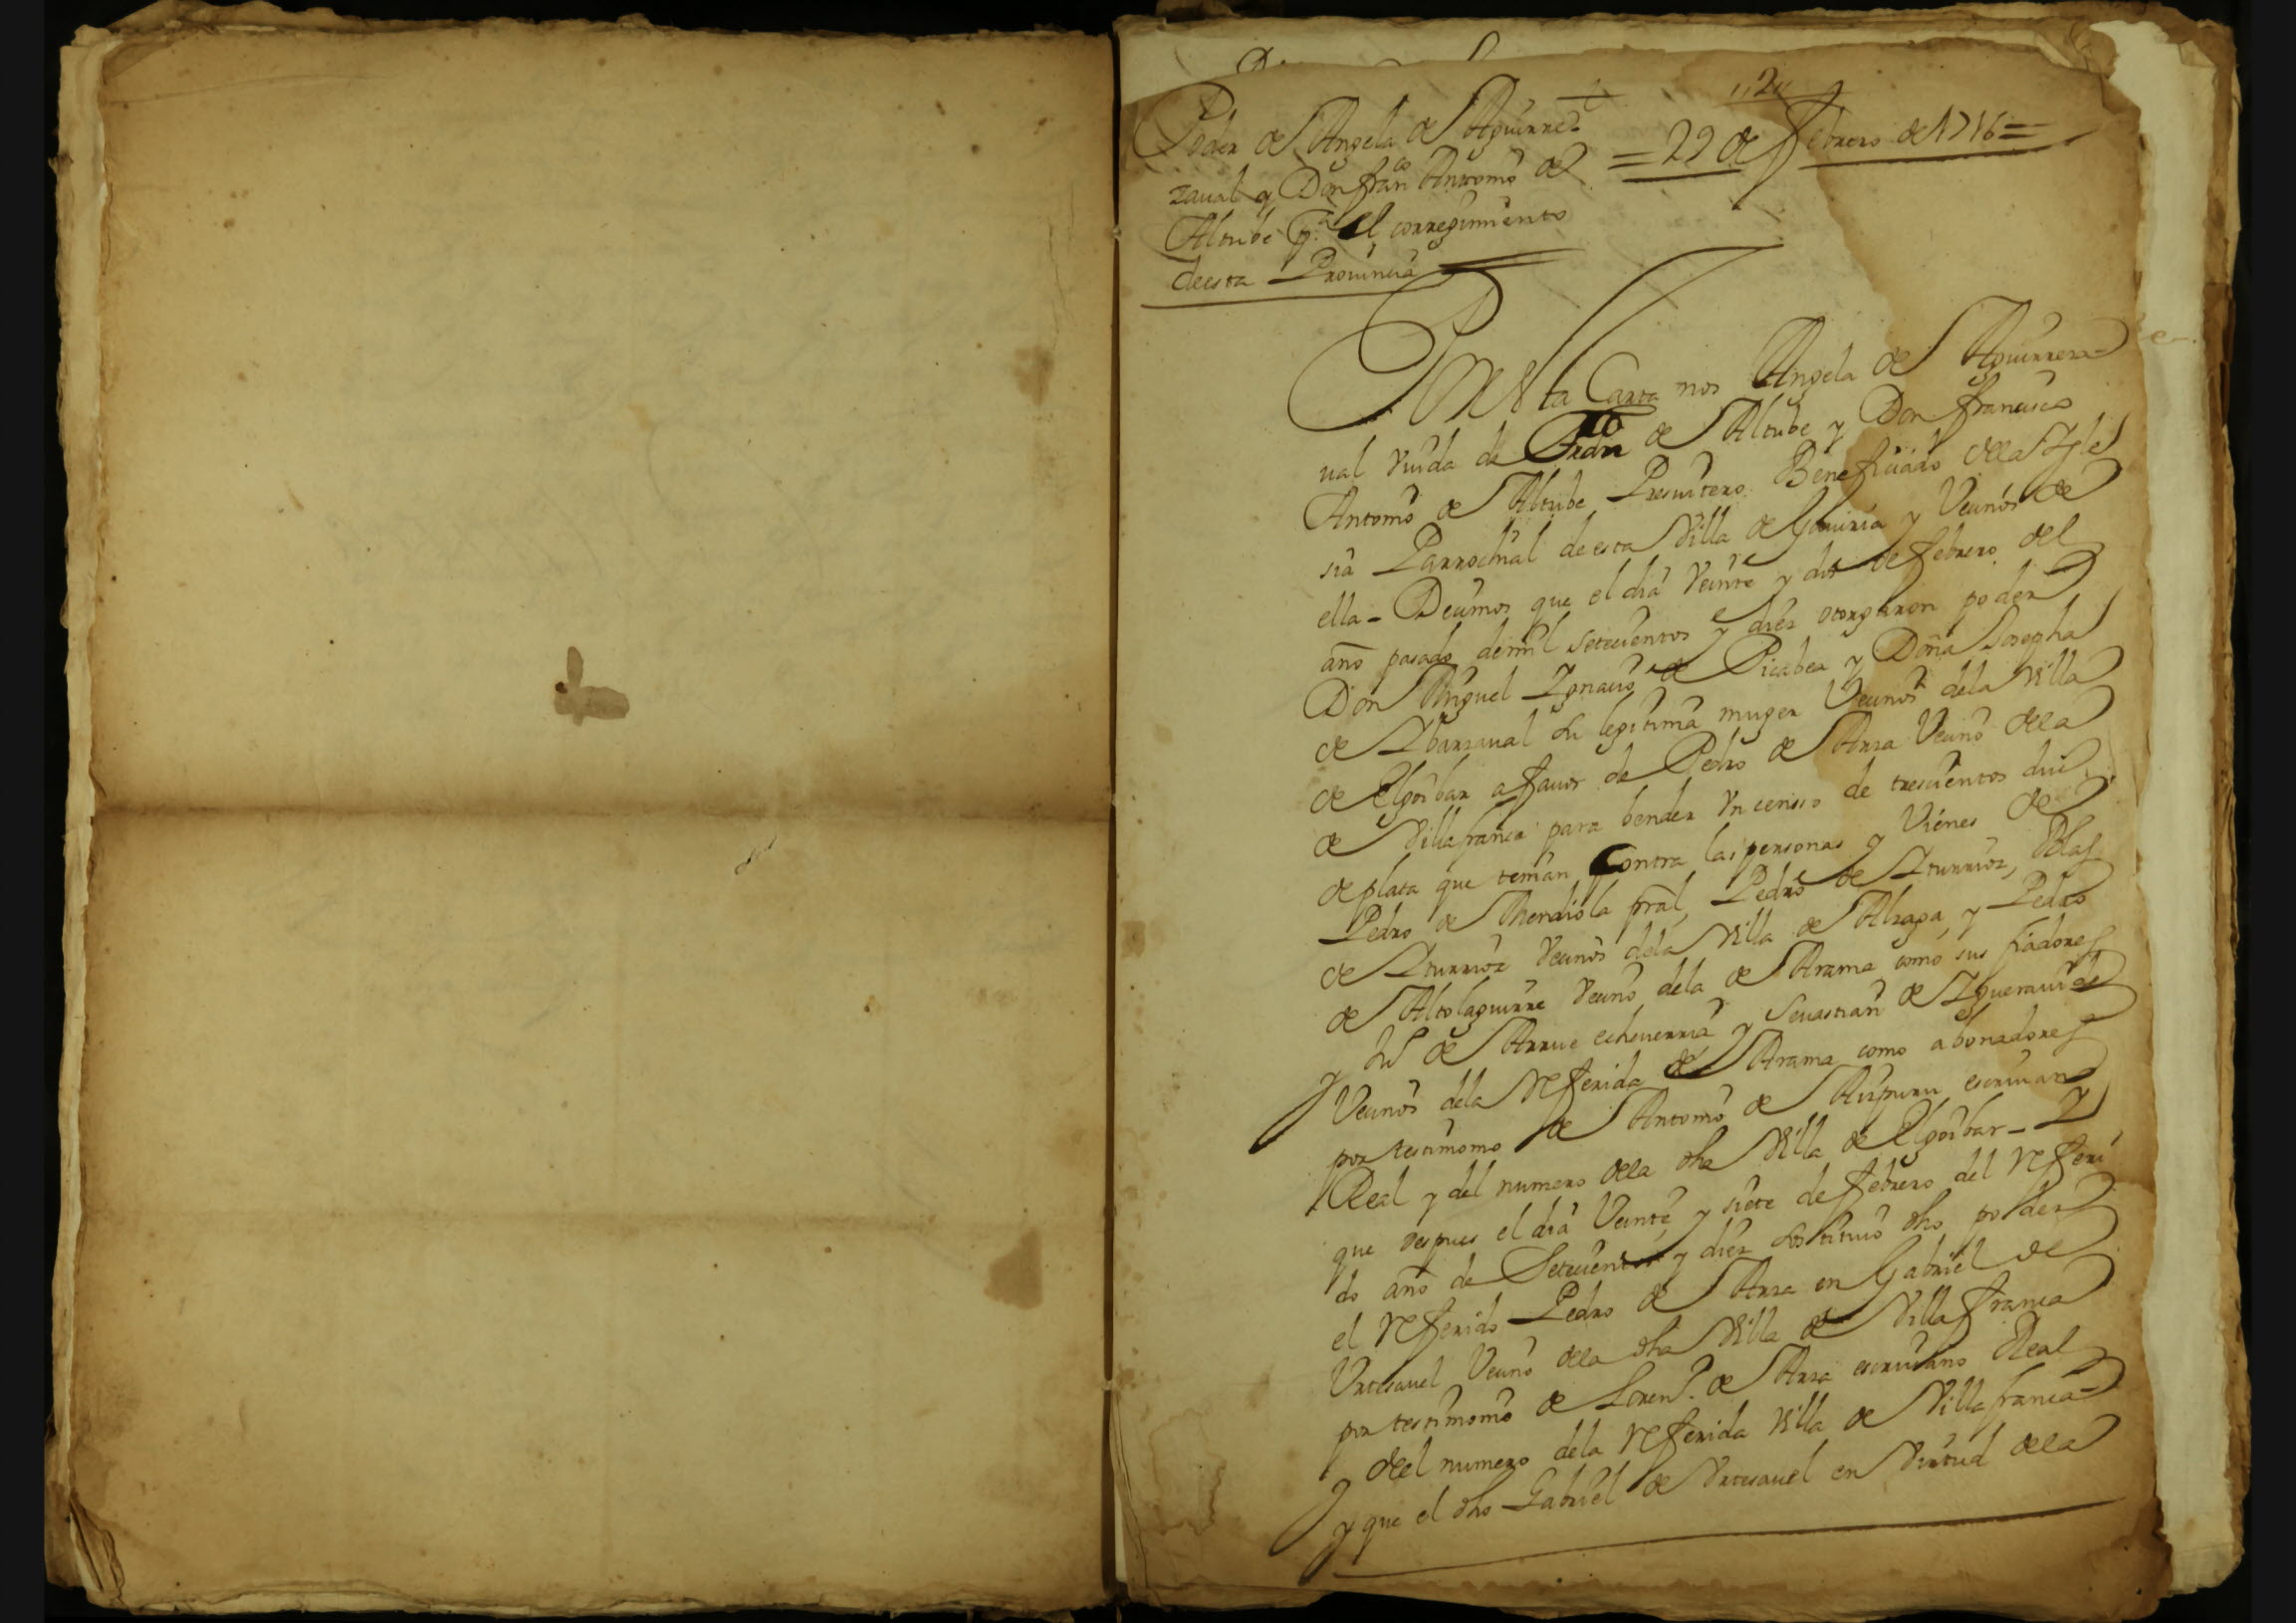 "2"
Poder de Angela de Aguirre
zaual y Don fran.co Antonio de
Altube p.a el corregimiento
deesta Prouincia
= 22 de febrero de 1716 =
En esta Carta nos Angela de Aguirreza
ual Viuda de Pedro de Altube y Don francisco
Antonio de Altube Presuitero Beneficiado dela Igle
sia Parrochial deesta Villa de Gauiria y Vecinos de
ella - Decimos que el dia Veinte y dos de febrero del
año pasado demil setecientos y diez otorgaron poder
Don Miguel Ignacio de Picabea y Doña Josepha
de Ybarzaual su legitima muger Vecinos dela Villa
de Elgoibar a fauor de Pedro de Arza Vecino dela
de Villafranca para bender Vn censso de trescientos duc.
de plata que tenian Contra las personas y Vienes de
Pedro de Mendiola pral, Pedro de Yturrioz, Blas
de Yturrioz Vecinos dela Villa de Alzaga, y Pedro
de Altolaguirre Vecino dela de Arama como sus fiadores
y de Arrue echeuerria y Seuastian de Ygueraui de
Vecinos dela referida de Arama como abonadores
por testimonio de Antonio de Aizpuru escriuano
Real y del numero dela dha Villa de Elgoibar - Y
que despues el dia Veinte y siete de febrero del referi
do año de Setecientos y diez sostituio dho poder
el referido Pedro de Arza en Gabriel de
Vrtesauel Vecino dela dha Villa de Villafranca
por testimonio de Loren.o de Arza escriuano Real
del numero dela referida Villa de Villafranca
y que el dho Gabriel de Vrtesauel en Virtud dela